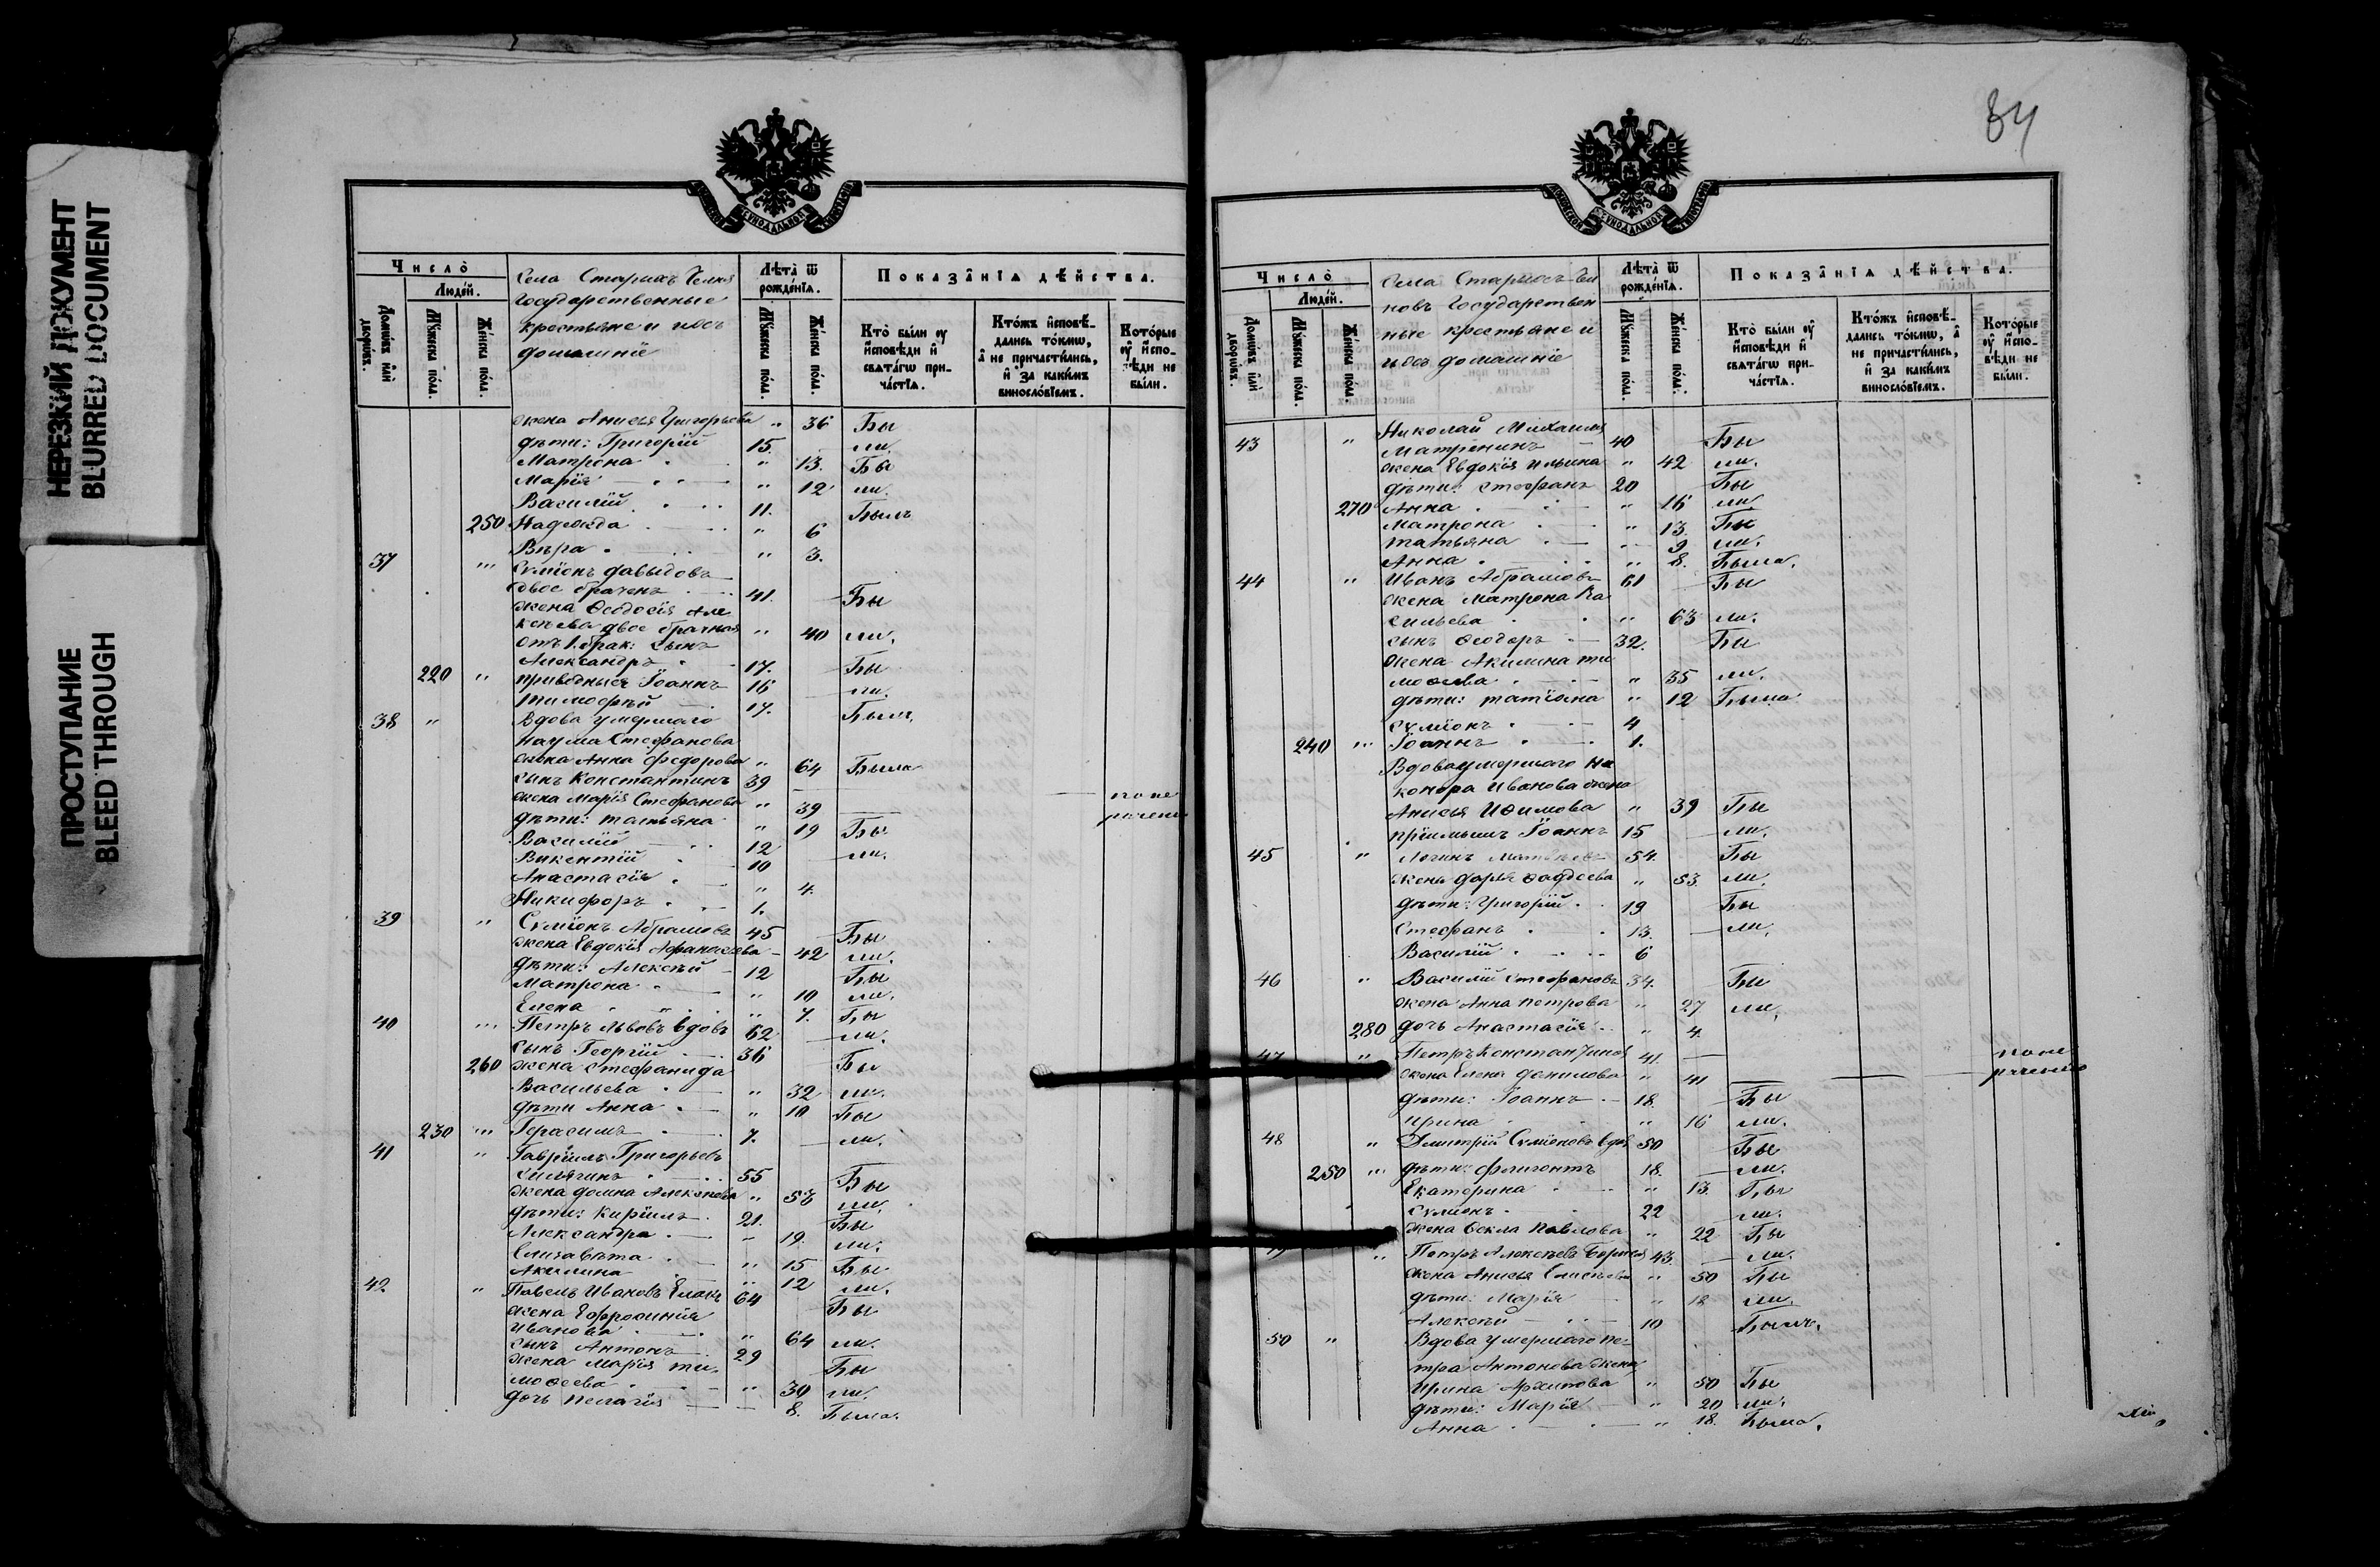 НЕРЕЗКИЙ ДОКУМЕНТ
BLURRED DOCUMENT
ПРОСТУПАНИЕ
BLEED THROUGH
Число̀
Людей.
Домѡвъ или дворѡвъ.
Мꙋжеска пола.
Женска пола.
Села Старыхъ
Государственные
крестьяне и ихъ
домашніе
Лѣта̀ ѿ рожденїѧ.
Мꙋжеска пола.
Женска пола.
Показанїѧ дѣйства.
Кто̀ были оу исповѣди и свѧтагѡ причастїѧ.
Ктожъ исповѣдались токмѡ, а не причастились, и за какимъ винословїемъ.
Которые оу исповѣди не были.
жена Анисья Григорьева " 36 Бы
дѣти: Григорій 15. ли.
Матрона " 13. Бы
Марія " 12 ли.
Василій 11. Былъ
250 Надежда " 6
Вѣра " 3.
37 Сѵміонъ Давыдовъ
двоебраченъ 41. Бы
жена Ѳеодосія Але
ксѣева двоебрачная " 40 ли.
отъ 1. брак: сынъ
Александръ 17. Бы
220 " приводныя Іоаннъ 16 ли.
Тимоѳей 17. Былъ
38 " Вдова умершаго
Наума Стефанова
жена Анна Федорова " 64 Была
сынъ Константинъ 39
жена Марія Стефанова " 39 по не
дѣти: Татьяна " 19 Бы рачению
Василій 12 ли.
Викентій 10
Анастасія " 4.
Никифоръ 1.
39 " Сѵміонъ Абрамовъ 45 Бы
жена Евдокія Афанасьева 42 ли.
дѣти: Алексѣй 12 Бы
Матрона " 10 ли.
Елена " 7. Бы
40 Петръ Львовъ вдовъ 62 ли.
сынъ Георгій 36 Бы
260 жена Стефанида
Васильева " 32 ли.
дѣти Анна " 10 Бы
230 Герасимъ 7. ли.
41 " Гавріилъ Григорьевъ
55 Бы
жена Домна Алексѣева " 53 ли.
дѣти: Кириллъ 21. Бы
Александра 19. ли.
Елизавета " 15 Бы
Акилина " 12 ли.
42 " Павелъ Ивановъ 64 Бы
жена Ефросинія
Иванова " 64 ли.
сынъ Антонъ 29 Бы
жена Марія Ти
моѳеева " 30 ли.
дочь Пелагія 8. Была.
84
Число̀
Людей.
Домѡвъ или дворѡвъ.
Мꙋжеска пола.
Женска пола.
Села Старыхъ
новъ Государствен
ные крестьяне и
ихъ домашніе
Лѣта̀ ѿ рожденїѧ.
Мꙋжеска пола.
Женска пола.
Показанїѧ дѣйства.
Кто̀ были оу исповѣди и свѧтагѡ причастїѧ.
Ктожъ исповѣдались токмѡ, а не причастились, и за какимъ винословїемъ.
Которые оу исповѣди не были.
43 " Николай Михаиловъ
Матренинъ 40 Бы
жена Евдокія Ильина " 42 ли.
дѣти: Стефанъ 20 Бы
270 Анна " 16 ли.
Матрона " 13. Бы
Татьяна 9 ли.
Анна " 8. Была.
44 " Иванъ Абрамовъ 61 Бы
жена Матрона Ва
сильева " 63 ли.
сынъ Ѳеодоръ 32. Бы
жена Акилина Ти
моѳеева " 35 ли.
дѣти: Татіана " 12 Была
Сѵміонъ 4
240 Іоаннъ 1.
Вдова умершаго Ни
конора Иванова жена
Анисья " 39 Бы
пріимышъ Іоаннъ 15 ли.
45 " Логинъ 54. Бы
жена Дарья Ѳаддеева " 53. ли.
дѣти: Григорій 19 Бы
Стефанъ 13. ли.
Василій 6
46 " Василій Стефановъ 34. Бы
жена Анна Петрова " 27 ли.
280 дочь Анастасія " 4.
47 " Петръ Константиновъ 41. по не
жена Елена Данилова " 41 рачению
дѣти: Іоаннъ 18. Бы
Ирина " 16 ли.
48 " Димитрій Сѵміоновъ вдов. 50 Бы
250 дѣти: 18. ли.
Екатерина " 13. Бы
Сѵміонъ 22 ли.
жена Ѳекла Павлова " 22 Бы
" Петръ Алексѣевъ 43. ли.
жена Анисья Елисѣева " 50 Бы
дѣти: Марія " 18 ли.
Алексѣй 10 Былъ.
50 " Вдова умершаго Пе-
тра Антонова жена
Ирина Архипова " 50 Бы
дѣти: Марія " 20 ли.
Анна " 18. Была.